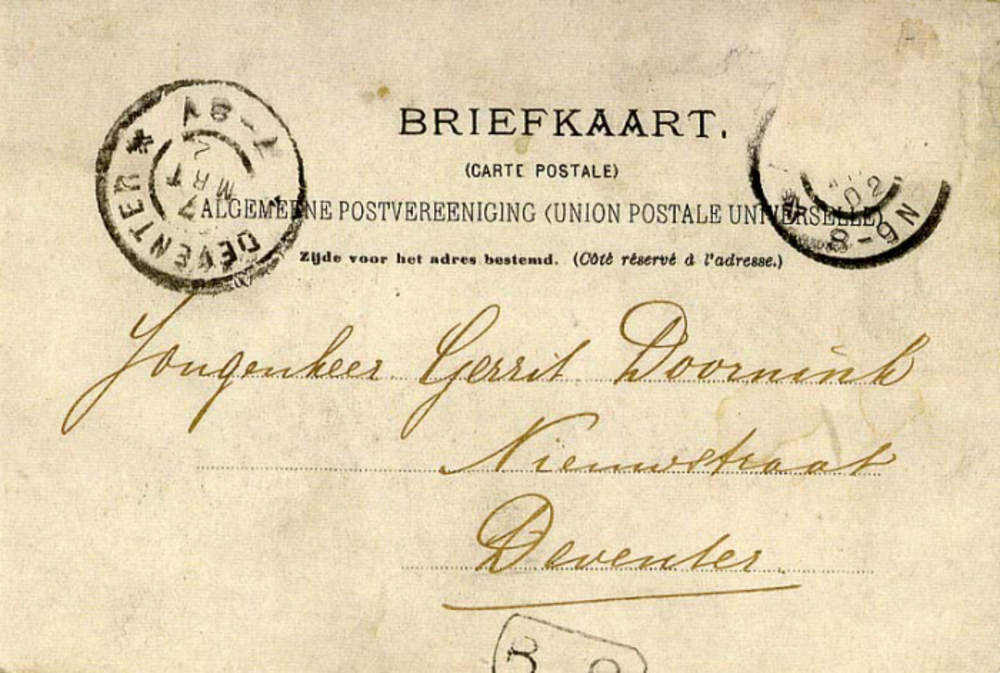 BRIEFKAART.
(CARTE POSTALE)
ALGEMEENE POSTVEREENIGING (UNION POSTALE UNIVERSELLE)
Zijde voor het adres bestemd. (Côté réservé à l'adresse.)
DEVENTER
MRT
02
8-9N
Jongenheer Gerrit Doornink
Nieuwstraat
Deventer